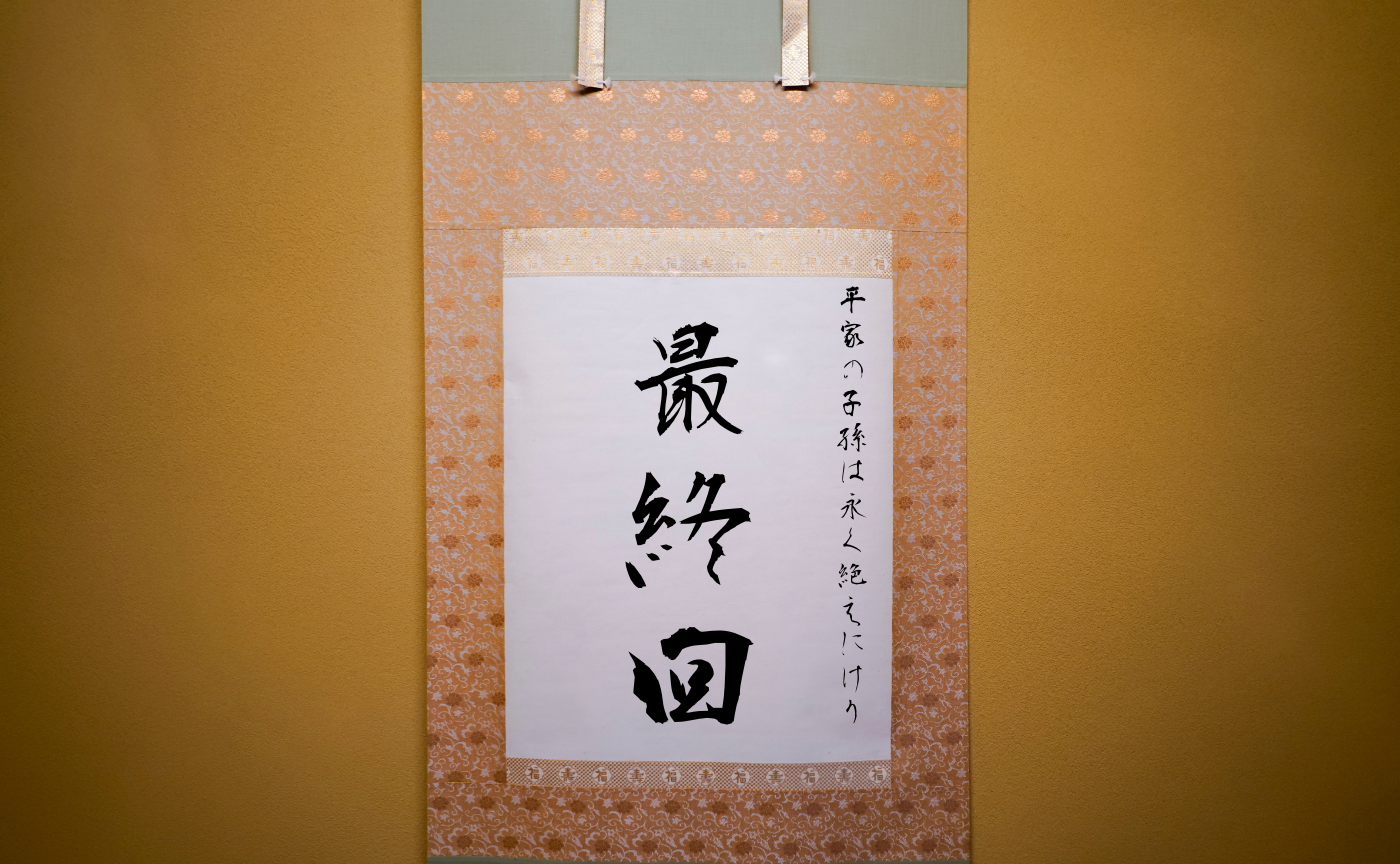 平家の子孫は永く絶えにけり
最終回